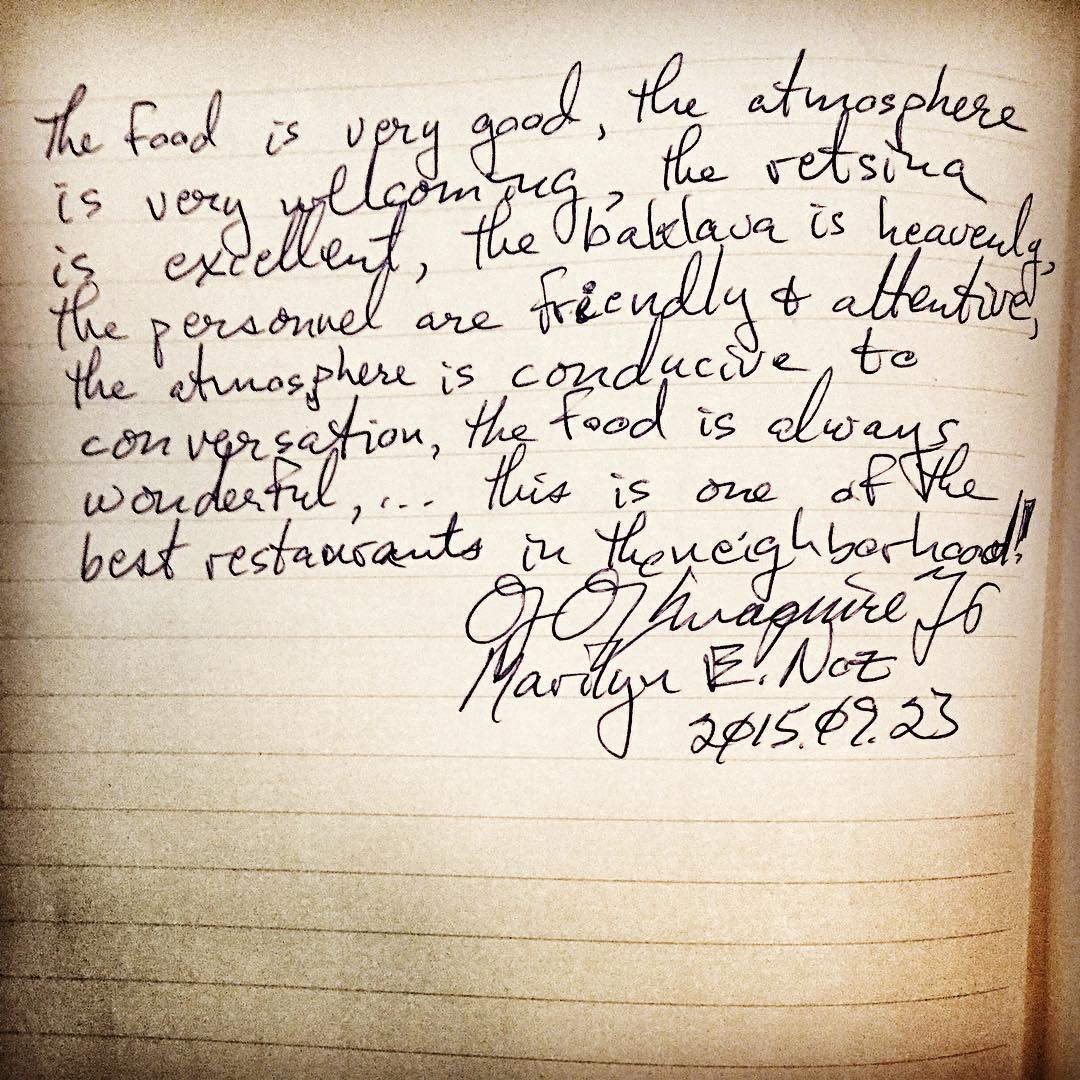 The food is very good, the atmosphere
is very wellcoming, the retsina
is excellent, the baklava is heavenly,
the personnel are friendly & attentive,
the atmosphere is conducive to
conversation, the food is always
wonderful, ... this is one of the
best restaurants in the neighborhood!!
Maguire
Marilyn E. Noz
2015.09.23